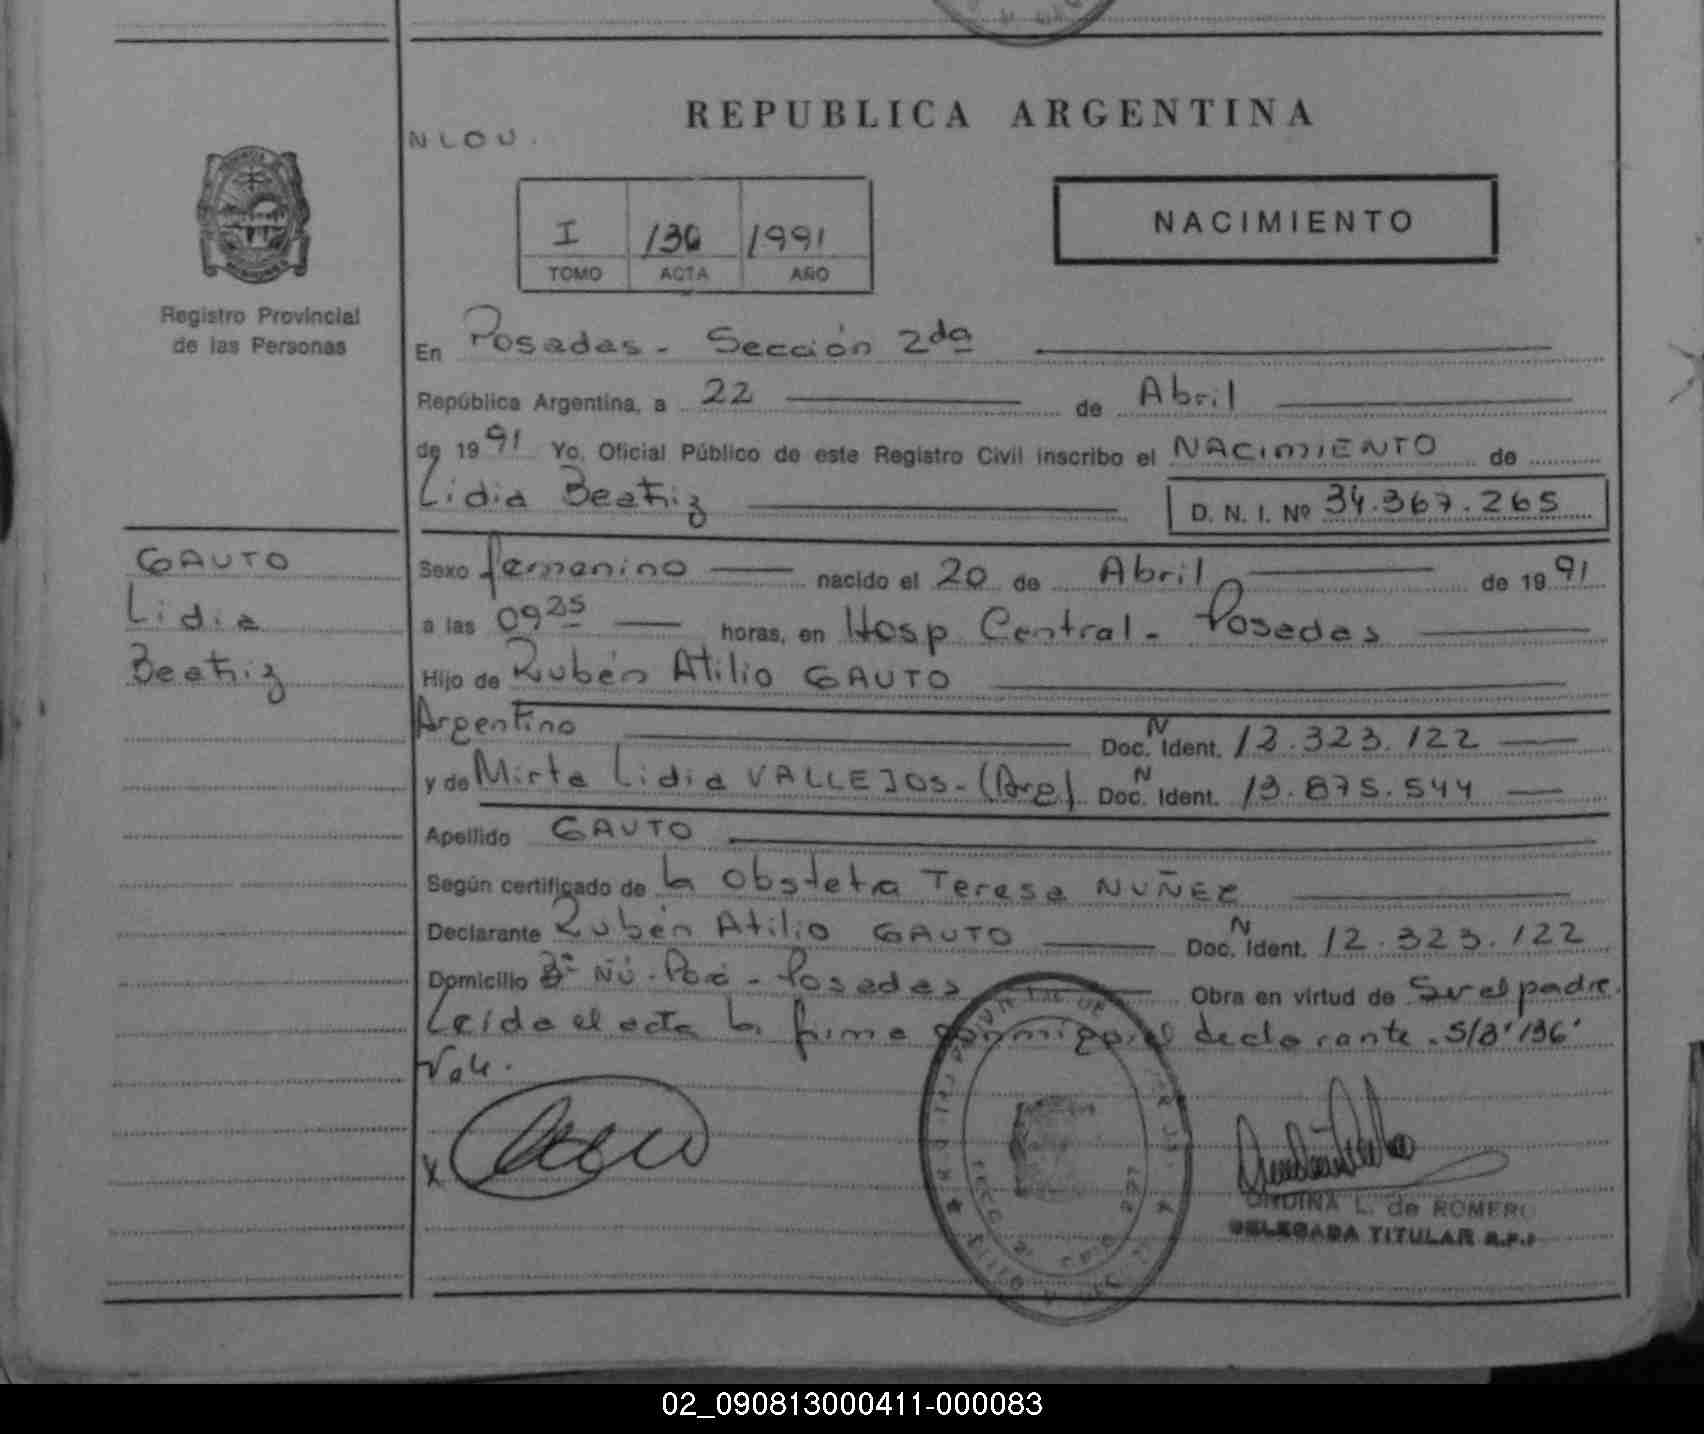 REPUBLICA ARGENTINA
NLOU.
NACIMIENTO
I 136 1991
TOMO ACTA AÑO
Registro Provincial
de las Personas
En Posadas - Sección 2da
República Argentina, a 22 de Abril
de 1991 Yo, Oficial Público de este Registro Civil inscribo el NACIMIENTO de
Lidia Beatriz D. N. I. Nº 34.367.265
GAUTO
Lidia
Beatriz
Sexo femenino nacido el 20 de Abril de 1991
a las 0925 horas, en Hosp Central - Posadas
Hijo de Rubén Atilio GAUTO
Argentino Doc. N Ident. 12.323.122
y de Mirta Lidia VALLEJOS - (Arg). Doc. N Ident. 13.875.544
Apellido GAUTO
Según certificado de la Obstetra Teresa NUÑEZ
Declarante Rubén Atilio GAUTO Doc. N Ident. 12.323.122
Domicilio Bº Ñú - Porá - Posadas Obra en virtud de Ser el padre.
Leída el acta la firma conmigo el declarante. S/B '136'
Vale.
X
ONDINA L. de ROMERO
DELEGADA TITULAR R.P.P
02_090813000411-000083